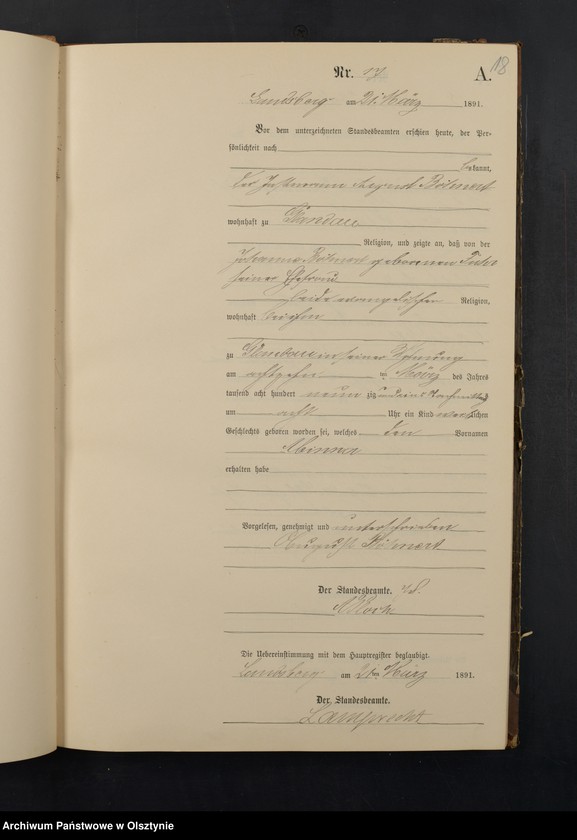 Nr. 17
A.
18
Landsberg am 21. März 1891.
Vor dem unterzeichneten Standesbeamten erschien heute, der Per-
sönlichkeit nach
bekannt,
der August Böhnert
wohnhaft zu
Religion, und zeigte an, daß von der
Johanna geborenen
seiner Ehefrau
beide evangelischer Religion,
wohnhaft bei ihm
zu in seiner Wohnung
am achtzehn ten März des Jahres
tausend acht hundert neun zig und eins Nachmittags
um acht Uhr ein Kind weiblichen
Geschlechts geboren worden sei, welches den Vornamen
erhalten habe
Vorgelesen, genehmigt und unterschrieben
August Böhnert
Der Standesbeamte.
Die Uebereinstimmung mit dem Hauptregister beglaubigt.
Landsberg am 21ten März 1891.
Der Standesbeamte.
Lamprecht
Archiwum Państwowe w Olsztynie